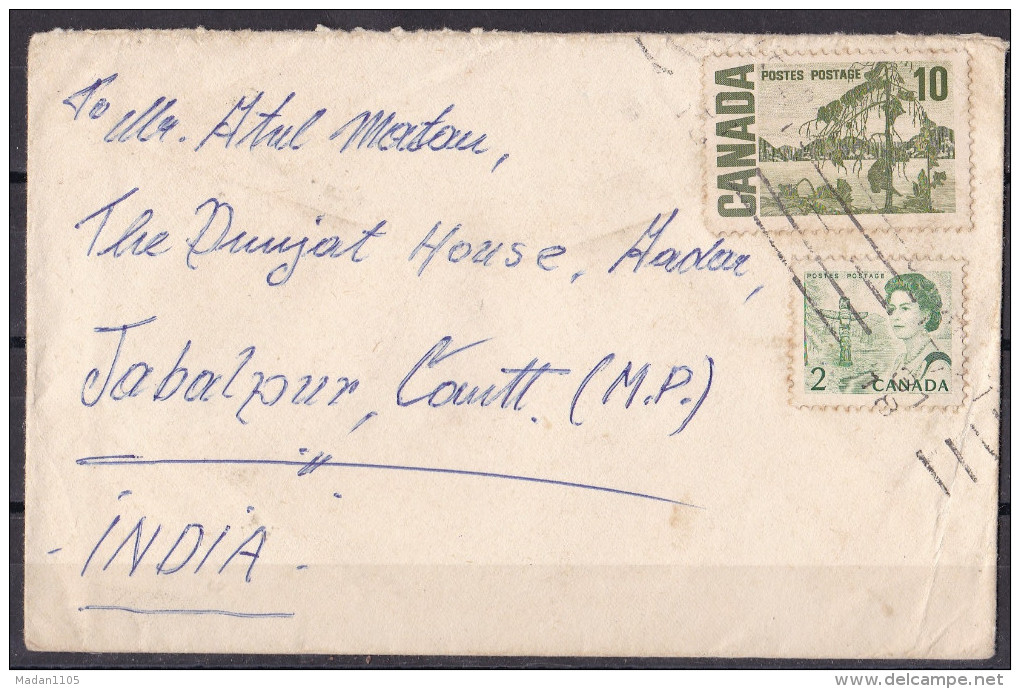 To
Mr. Atul Matau,
The Dunjat House, Sadar,
Jabalpur, Cantt. (M.P.)
INDIA
CANADA
POSTES POSTAGE 10
POSTES POSTAGE
2 CANADA
Madan1105
www.delcampe.net